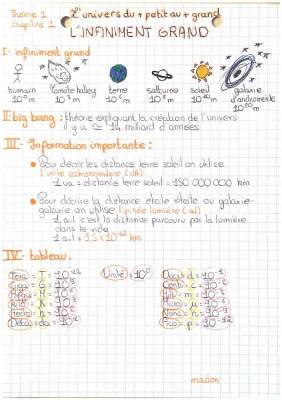 Thème 1
Chapitre 1
L'univers du + petit au + grand
L'INFINIMENT GRAND
I - infiniment grand
humain
comète halley
terre
saturne
soleil
galaxie
d'andromède
II big bang : théorie expliquant la création de l'univers
il y a ≈ 14 milliard d'années
III - Information importante :
Pour décrire les distance terre soleil on utilise
l'unité astronomique (UA)
1 ua = distance terre soleil = 150 000 000 km
Pour décrire la distance étoile étoile ou galaxie-
galaxie on utilise l'année lumière (al)
1 a.l c'est la distance parcouru par la lumière
dans le vide
1 a.l = 9,5 × 10¹² km
IV - tableau.
Téra = T = 10¹²
Giga = G = 10⁹
Méga = M = 10⁶
Kilo = K = 10³
Hecto = h = 10²
Déca = da = 10¹
Unité = 10⁰
Déci = d = 10⁻¹
Centi = c = 10⁻²
Milli = m = 10⁻³
Micro = μ = 10⁻⁶
Nano = n = 10⁻⁹
Pico = p = 10⁻¹²